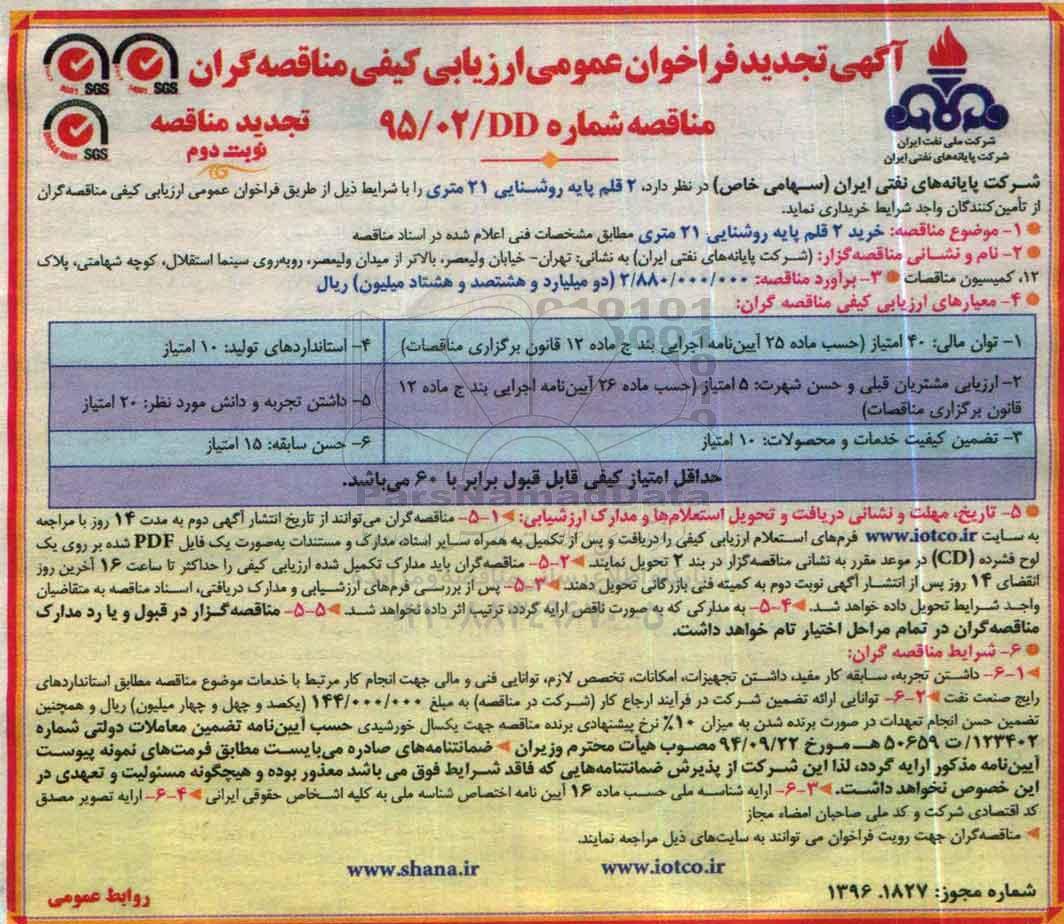 آگهی تجدید فراخوان عمومی ارزیابی کیفی مناقصه‌گران
SGS
SGS
مناقصه شماره ۹۵/۰۲/DD
تجدید مناقصه
نوبت دوم
SGS
شرکت ملی نفت ایران
شرکت پایانه‌های نفتی ایران
شرکت پایانه‌های نفتی ایران (سهامی خاص) در نظر دارد، ۲ قلم پایه روشنایی ۲۱ متری را با شرایط ذیل از طریق فراخوان عمومی ارزیابی کیفی مناقصه‌گران
از تأمین‌کنندگان واجد شرایط خریداری نماید.
۱- موضوع مناقصه: خرید ۲ قلم پایه روشنایی ۲۱ متری مطابق مشخصات فنی اعلام شده در اسناد مناقصه
۲- نام و نشانی مناقصه‌گزار: (شرکت پایانه‌های نفتی ایران) به نشانی: تهران- خیابان ولیعصر، بالاتر از میدان ولیعصر، روبه‌روی سینما استقلال، کوچه شهامتی، پلاک
۱۲، کمیسیون مناقصات ۳- برآورد مناقصه: ۲/۸۸۰/۰۰۰/۰۰۰ (دو میلیارد و هشتصد و هشتاد میلیون) ریال
۴- معیارهای ارزیابی کیفی مناقصه گران:
۱- توان مالی: ۴۰ امتیاز (حسب ماده ۲۵ آیین‌نامه اجرایی بند ج ماده ۱۲ قانون برگزاری مناقصات)
۴- استانداردهای تولید: ۱۰ امتیاز
۲- ارزیابی مشتریان قبلی و حسن شهرت: ۵ امتیاز (حسب ماده ۲۶ آیین‌نامه اجرایی بند ج ماده ۱۲
قانون برگزاری مناقصات)
۵- داشتن تجربه و دانش مورد نظر: ۲۰ امتیاز
۳- تضمین کیفیت خدمات و محصولات: ۱۰ امتیاز
۶- حسن سابقه: ۱۵ امتیاز
حداقل امتیاز کیفی قابل قبول برابر با ۶۰ می‌باشد.
ParsNamadData
۵- تاریخ، مهلت و نشانی دریافت و تحویل استعلام‌ها و مدارک ارزشیابی: ۱-۵- مناقصه‌گران می‌توانند از تاریخ انتشار آگهی دوم به مدت ۱۴ روز با مراجعه
به سایت www.iotco.ir فرم‌های استعلام ارزیابی کیفی را دریافت و پس از تکمیل به همراه سایر اسناد، مدارک و مستندات به‌صورت یک فایل PDF شده بر روی یک
لوح فشرده (CD) در موعد مقرر به نشانی مناقصه‌گزار در بند ۲ تحویل نمایند. ۲-۵- مناقصه‌گران باید مدارک تکمیل شده ارزیابی کیفی را حداکثر تا ساعت ۱۶ آخرین روز
انقضای ۱۴ روز پس از انتشار آگهی نوبت دوم به کمیته فنی بازرگانی تحویل دهند. ۳-۵- پس از بررسی فرم‌های ارزشیابی و مدارک دریافتی، اسناد مناقصه به متقاضیان
واجد شرایط تحویل داده خواهد شد. ۴-۵- به مدارکی که به صورت ناقص ارایه گردد، ترتیب اثر داده نخواهد شد. ۵-۵- مناقصه‌گزار در قبول و یا رد مدارک
مناقصه‌گران در تمام مراحل اختیار تام خواهد داشت.
۶- شرایط مناقصه گران:
۱-۶- داشتن تجربه، سابقه کار مفید، داشتن تجهیزات، امکانات، تخصص لازم، توانایی فنی و مالی جهت انجام کار مرتبط با خدمات موضوع مناقصه مطابق استانداردهای
رایج صنعت نفت ۲-۶- توانایی ارائه تضمین شرکت در فرآیند ارجاع کار (شرکت در مناقصه) به مبلغ ۱۴۴/۰۰۰/۰۰۰ (یکصد و چهل و چهار میلیون) ریال و همچنین
تضمین حسن انجام تعهدات در صورت برنده شدن به میزان ۱۰٪ نرخ پیشنهادی برنده مناقصه جهت یکسال خورشیدی حسب آیین‌نامه تضمین معاملات دولتی شماره
۱۲۳۴۰۲/ت ۵۰۶۵۹ هـ مورخ ۹۴/۰۹/۲۲ مصوب هیأت محترم وزیران ضمانتنامه‌های صادره می‌بایست مطابق فرمت‌های نمونه پیوست
آیین‌نامه مذکور ارایه گردد، لذا این شرکت از پذیرش ضمانتنامه‌هایی که فاقد شرایط فوق می باشد معذور بوده و هیچگونه مسئولیت و تعهدی در
این خصوص نخواهد داشت. ۳-۶- ارایه شناسه ملی حسب ماده ۱۶ آیین نامه اختصاص شناسه ملی به کلیه اشخاص حقوقی ایرانی ۴-۶- ارایه تصویر مصدق
کد اقتصادی شرکت و کد ملی صاحبان امضاء مجاز
مناقصه‌گران جهت رویت فراخوان می توانند به سایت‌های ذیل مراجعه نمایند.
www.iotco.ir
www.shana.ir
شماره مجوز: ۱۸۲۷. ۱۳۹۶
روابط عمومی